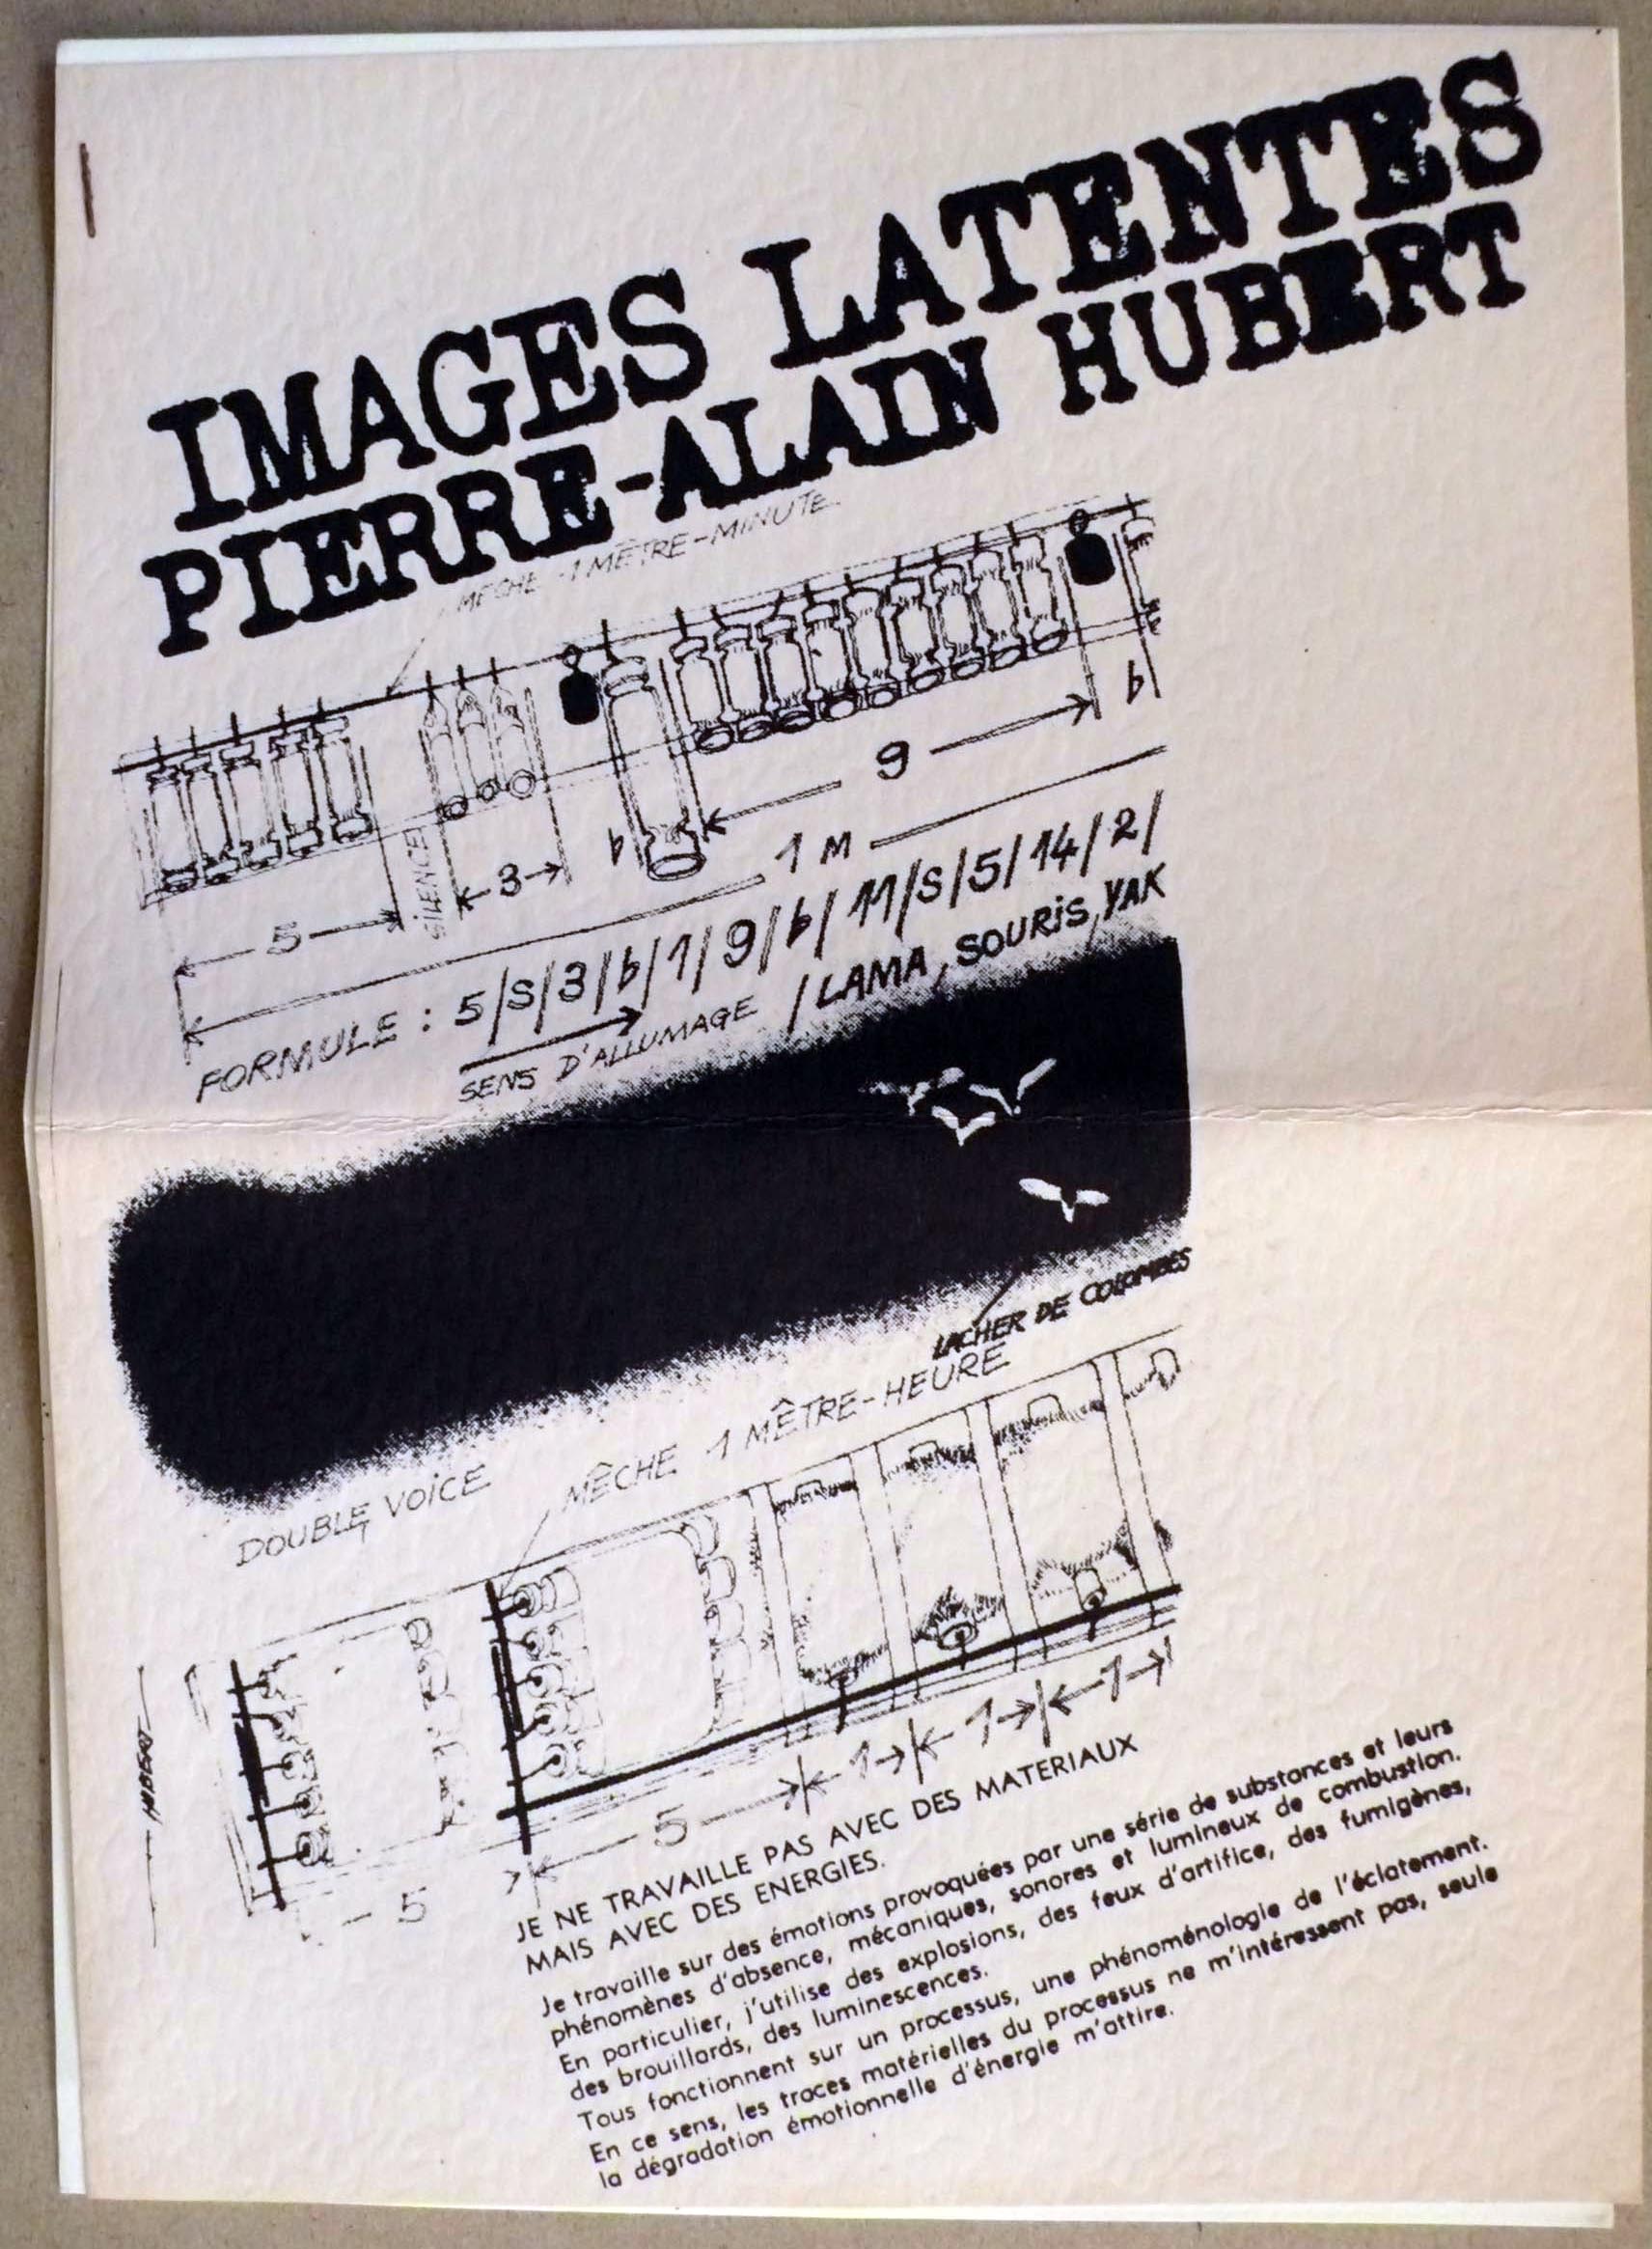 IMAGES LATENTES
PIERRE-ALAIN HUBERT
MÊCHE 1 MÊTRE-MINUTE
5
SILENCE
3
b
9
b
1 M
FORMULE : 5/S/3/b/1/9/b/11/S/5/14/2/
SENS D'ALLUMAGE / LAMA, SOURIS, YAK
LACHER DE COLOMBES
DOUBLE VOICE
MÊCHE 1 MÊTRE-HEURE
5
5
1
1
1
JE NE TRAVAILLE PAS AVEC DES MATERIAUX
MAIS AVEC DES ENERGIES.
Je travaille sur des émotions provoquées par une série de substances et leurs
phénomènes d'absence, mécaniques, sonores et lumineux de combustion.
En particulier, j'utilise des explosions, des feux d'artifice, des fumigènes,
des brouillards, des luminescences.
Tous fonctionnent sur un processus, une phénoménologie de l'éclatement.
En ce sens, les traces matérielles du processus ne m'intéressent pas, seule
la dégradation émotionnelle d'énergie m'attire.